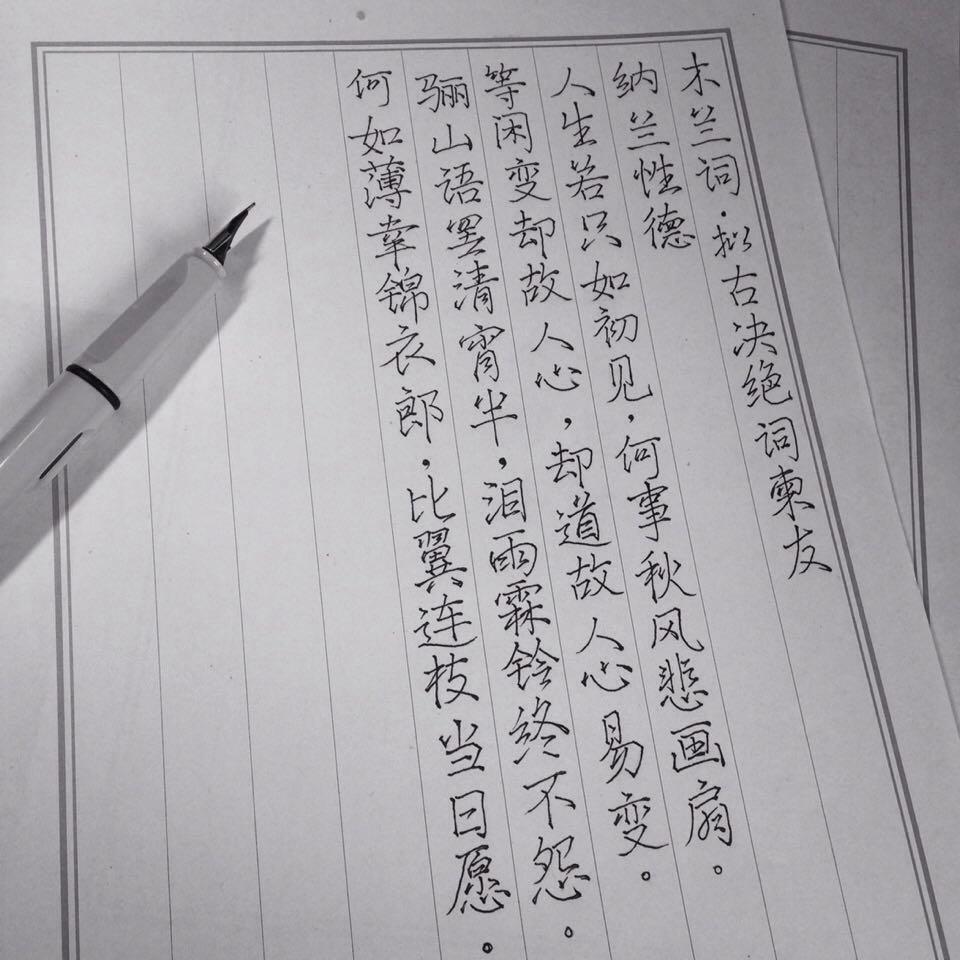 木兰词·拟古决绝词柬友
纳兰性德
人生若只如初见，何事秋风悲画扇。
等闲变却故人心，却道故人心易变。
骊山语罢清宵半，泪雨霖铃终不怨。
何如薄幸锦衣郎，比翼连枝当日愿。